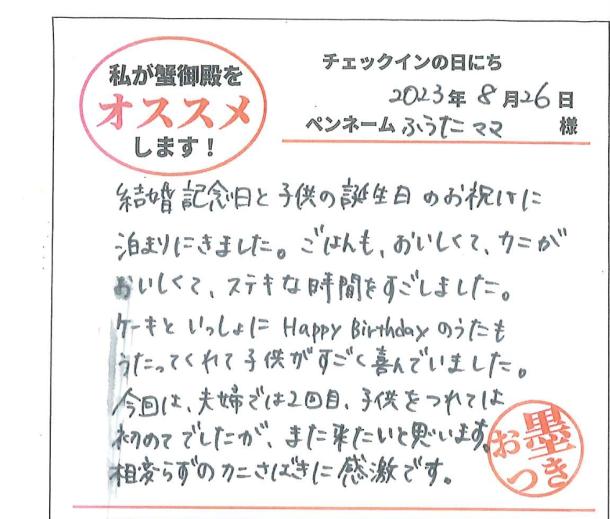 私が蟹御殿を
オススメ
します！
チェックインの日にち
2023年 8月26日
ペンネーム ふうたママ 様
結婚記念日と子供の誕生日のお祝いに
泊まりにきました。ごはんも、おいしくて、カニが
おいしくて、ステキな時間をすごしました。
ケーキといっしょに Happy Birthday のうたも
うたってくれて子供がすごく喜んでいました。
今回は、夫婦では2回目、子供をつれては
初めてでしたが、また来たいと思います。
相変らずのカニさばきに感激です。
お墨
つき